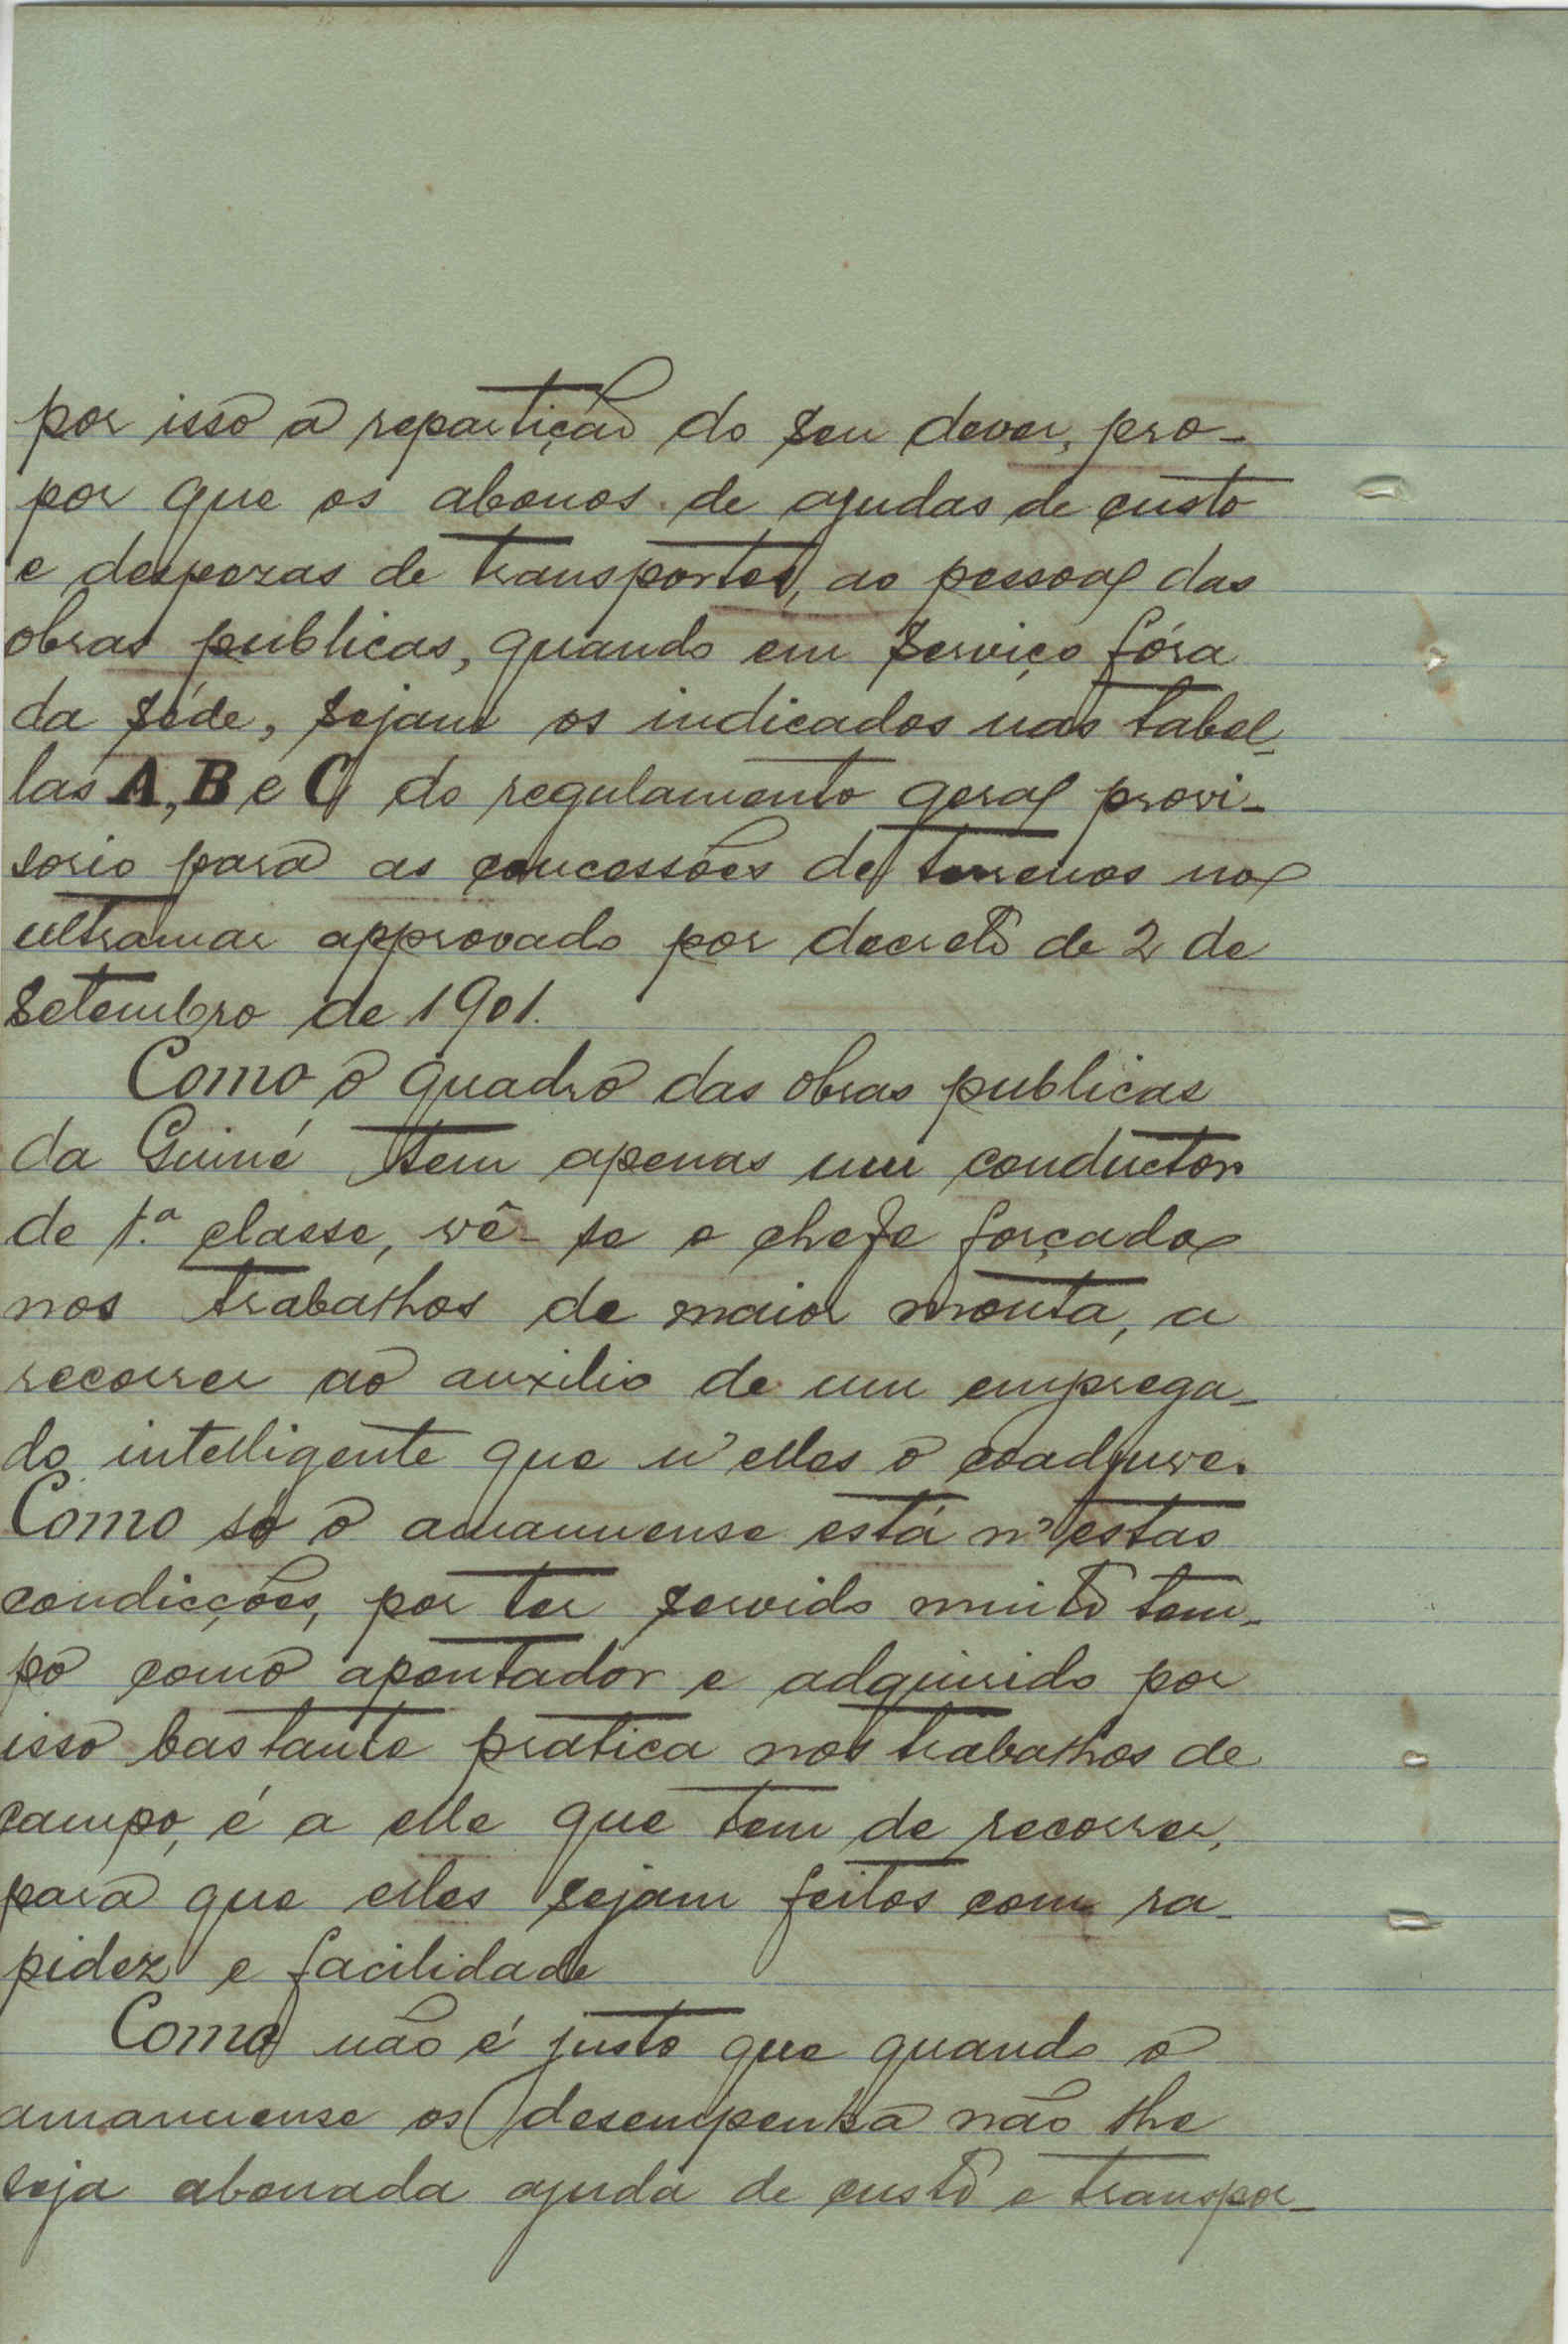 por isso a repartição do seu dever, pro-
por que os abonos de ajudas de custo
e despezas de transportes, ao pessoal das
obras publicas, quando em serviço fóra
da séde, sejam os indicados nas tabel-
las A, B e C do regulamento geral provi-
sorio para as concessões de terrenos no
ultramar approvado por decreto de 2 de
setembro de 1901.
Como o quadro das obras publicas
da Guiné tem apenas um conductor
de 1.ª classe, vê-se o chefe forçado
nos trabalhos de maior monta, a
recorrer ao auxilio de um emprega-
do intelligente que n'elles o coadjuve.
Como só o amanuense está n'estas
condicções, por ter servido muito tem-
po como apontador e adquirido por
isso bastante pratica nos trabalhos de
campo, é a elle que tem de recorrer,
para que elles sejam feitos com ra-
pidez e facilidade
Como não é justo que quando o
amanuense os desempenha não lhe
seja abonada ajuda de custo e transpor-